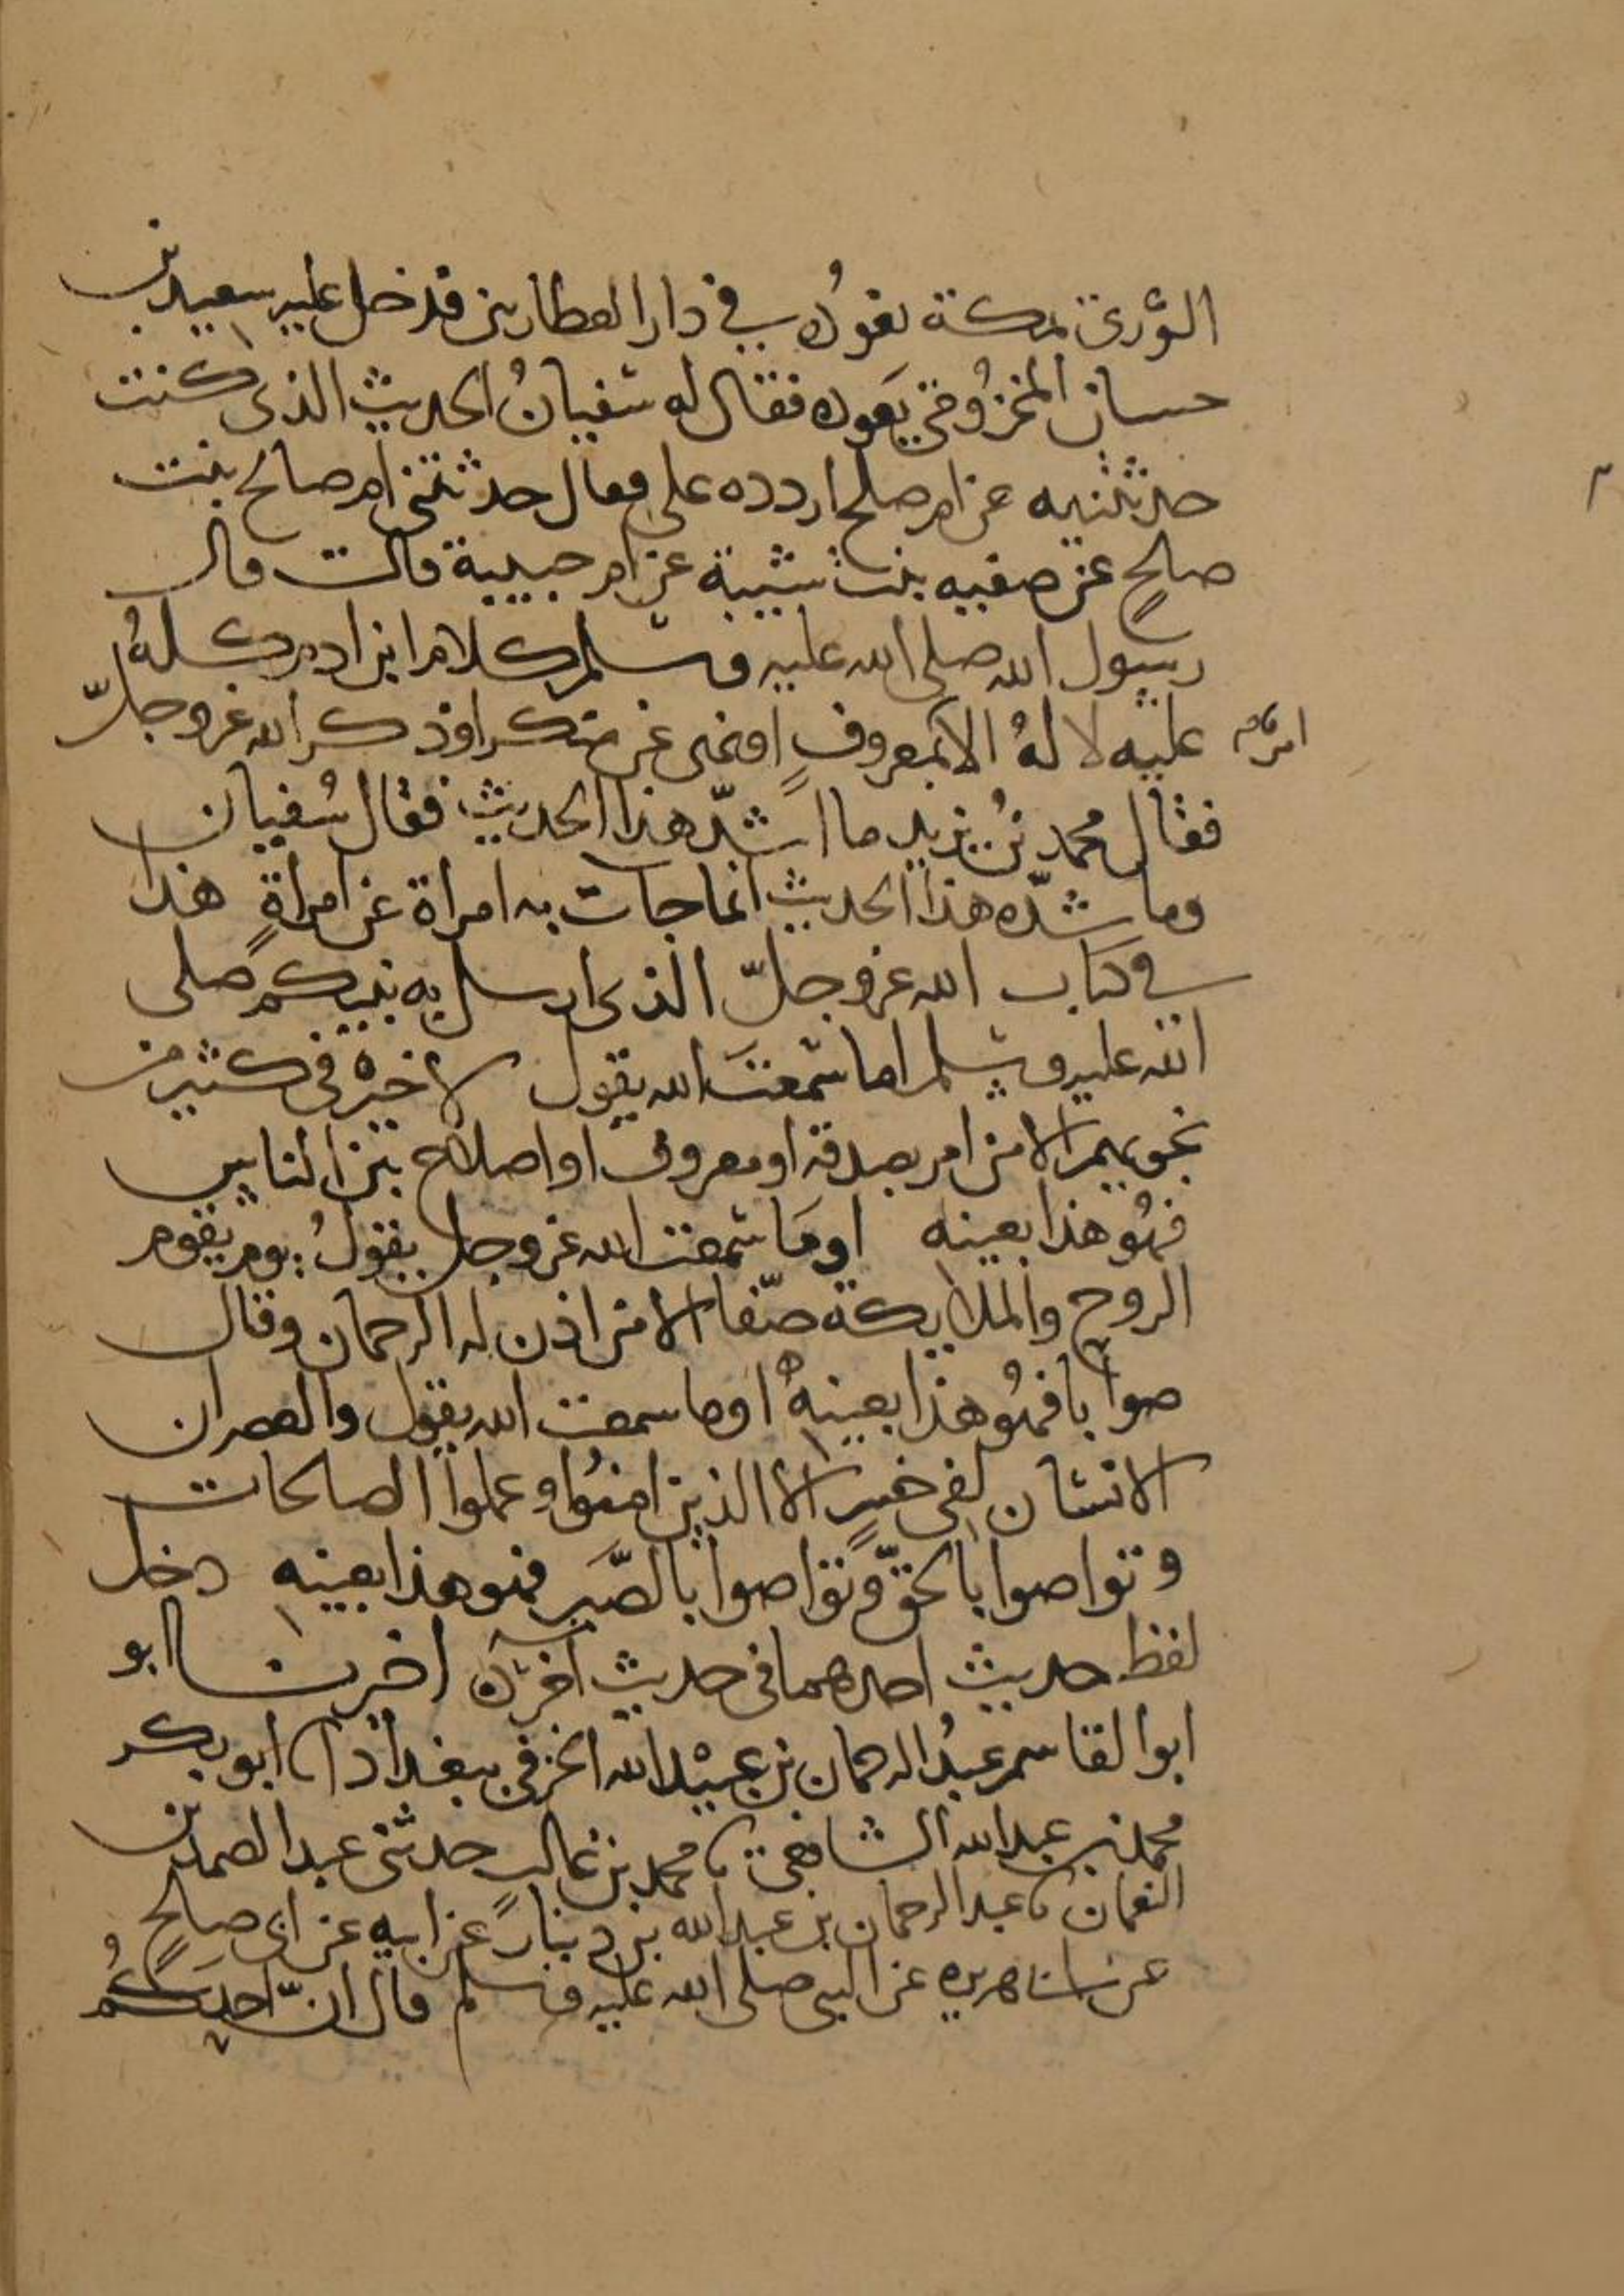 الثوري بمكة نعوده في دار العطارين فدخل عليه سعيد بن
حسان المخزومي يعوده فقال له سفيانُ الحديث الذي كنت
حدثتنيه عن ام صلح اردده علي فقال حدثتني ام صالح بنت
صالحٍ عن صفيه بنت شيبة عن ام حبيبة قالت قال
رسول الله صلى الله عليه وسلم كلام ابن ادم كلهُ
عليه لا لهُ الا بمعروفٍ او نهى عن منكر او ذكر الله عز وجلّ
امر
فقال محمد بنُ يزيد ما اشدّ هذا الحديث فقال سُفيان
وما شدّه هذا الحديث انما جات به امراة عن امراةٍ هذا
في كتاب الله عز وجلّ الذى ارسل به نبيكم صلى
الله عليه وسلم اما سمعتَ الله يقول لا خير في كثير من
نجويهم الا من امر بصدقة او معروف او اصلاح بين الناس
فهُو هذا بعينه اومَا سمعت الله عز وجل يقولُ يوم يقوم
الروح والملايكة صفّا الا من اذن له الرحمان وقال
صوابا فهُو هذا بعينهُ اوما سمعت الله يقول والعصر ان
الانسان لفي خسرٍ الا الذين امنُوا وعملوا الصالحات
وتواصوا بالحقّ وتواصوا بالصّبر فهو هذا بعينه دخل
لفظ حديث احدهما في حديث اخر اخبرنا ابو
ابو القاسم عبدُ الرحمان بن عبيْد الله الخرفي ببغداد انا ابو بكر
محمد بن عبد الله الشافعي نا محمد بن غالب حدثني عبد الصمد بن
النعمان نا عبد الرحمان بن عبد الله بن دينارٍ عن ابيه عن ابي صالحٍ
عن ابي هريره عن النبي صلى الله عليه وسلم قال انّ احدكُم